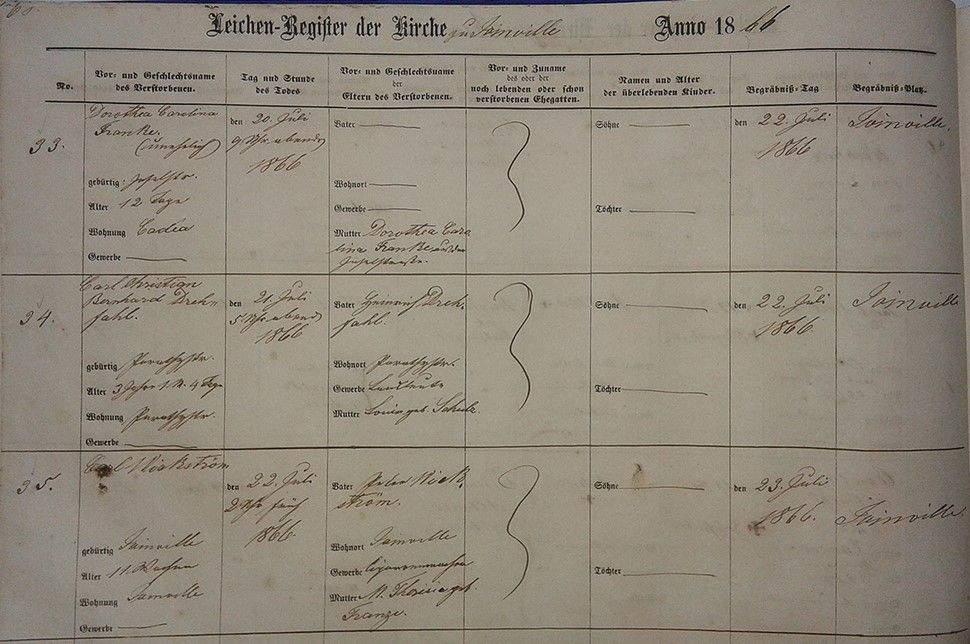 Leichen-Register der Kirche zu Joinville Anno 1866
No.
Vor- und Geschlechtsname
des Verstorbenen.
Tag und Stunde
des Todes
Vor- und Geschlechtsname
der
Eltern des Verstorbenen.
Vor- und Zuname
des oder der
noch lebenden oder schon
verstorbenen Ehegatten.
Namen und Alter
der überlebenden Kinder.
Begräbniß-Tag
Begräbniß-Platz.
33.
Dorothea Carolina
Franke.
(unehelich)
gebürtig: Inselstr.
Alter 12 Tage
Wohnung
Gewerbe
den 20. Juli
9 Uhr abends
1866
Vater
Wohnort
Gewerbe
Mutter Dorothea Caro
lina Franke aus der
Inselstrasse.
Söhne
Töchter
den 22. Juli
1866
Joinville.
34.
Carl Christian
Bernhard Dreh
fahl.
gebürtig
Alter 3 Jahre 1 M. 4 Tage
Wohnung
Gewerbe
den 21. Juli
5 Uhr abends
1866
Vater Heinrich Dreh
fahl.
Wohnort
Gewerbe Landleute
Mutter Louise geb. Schulz.
Söhne
Töchter
den 22. Juli
1866
Joinville
35.
Carl Wickström
gebürtig Joinville
Alter 11 Wochen
Wohnung Joinville
Gewerbe
den 22. Juli
2 Uhr früh
1866
Vater Peter Wick
ström.
Wohnort Joinville
Gewerbe Cigarrenmacher
Mutter M. Theresia geb.
Franze.
Söhne
Töchter
den 23. Juli
1866.
Joinville.